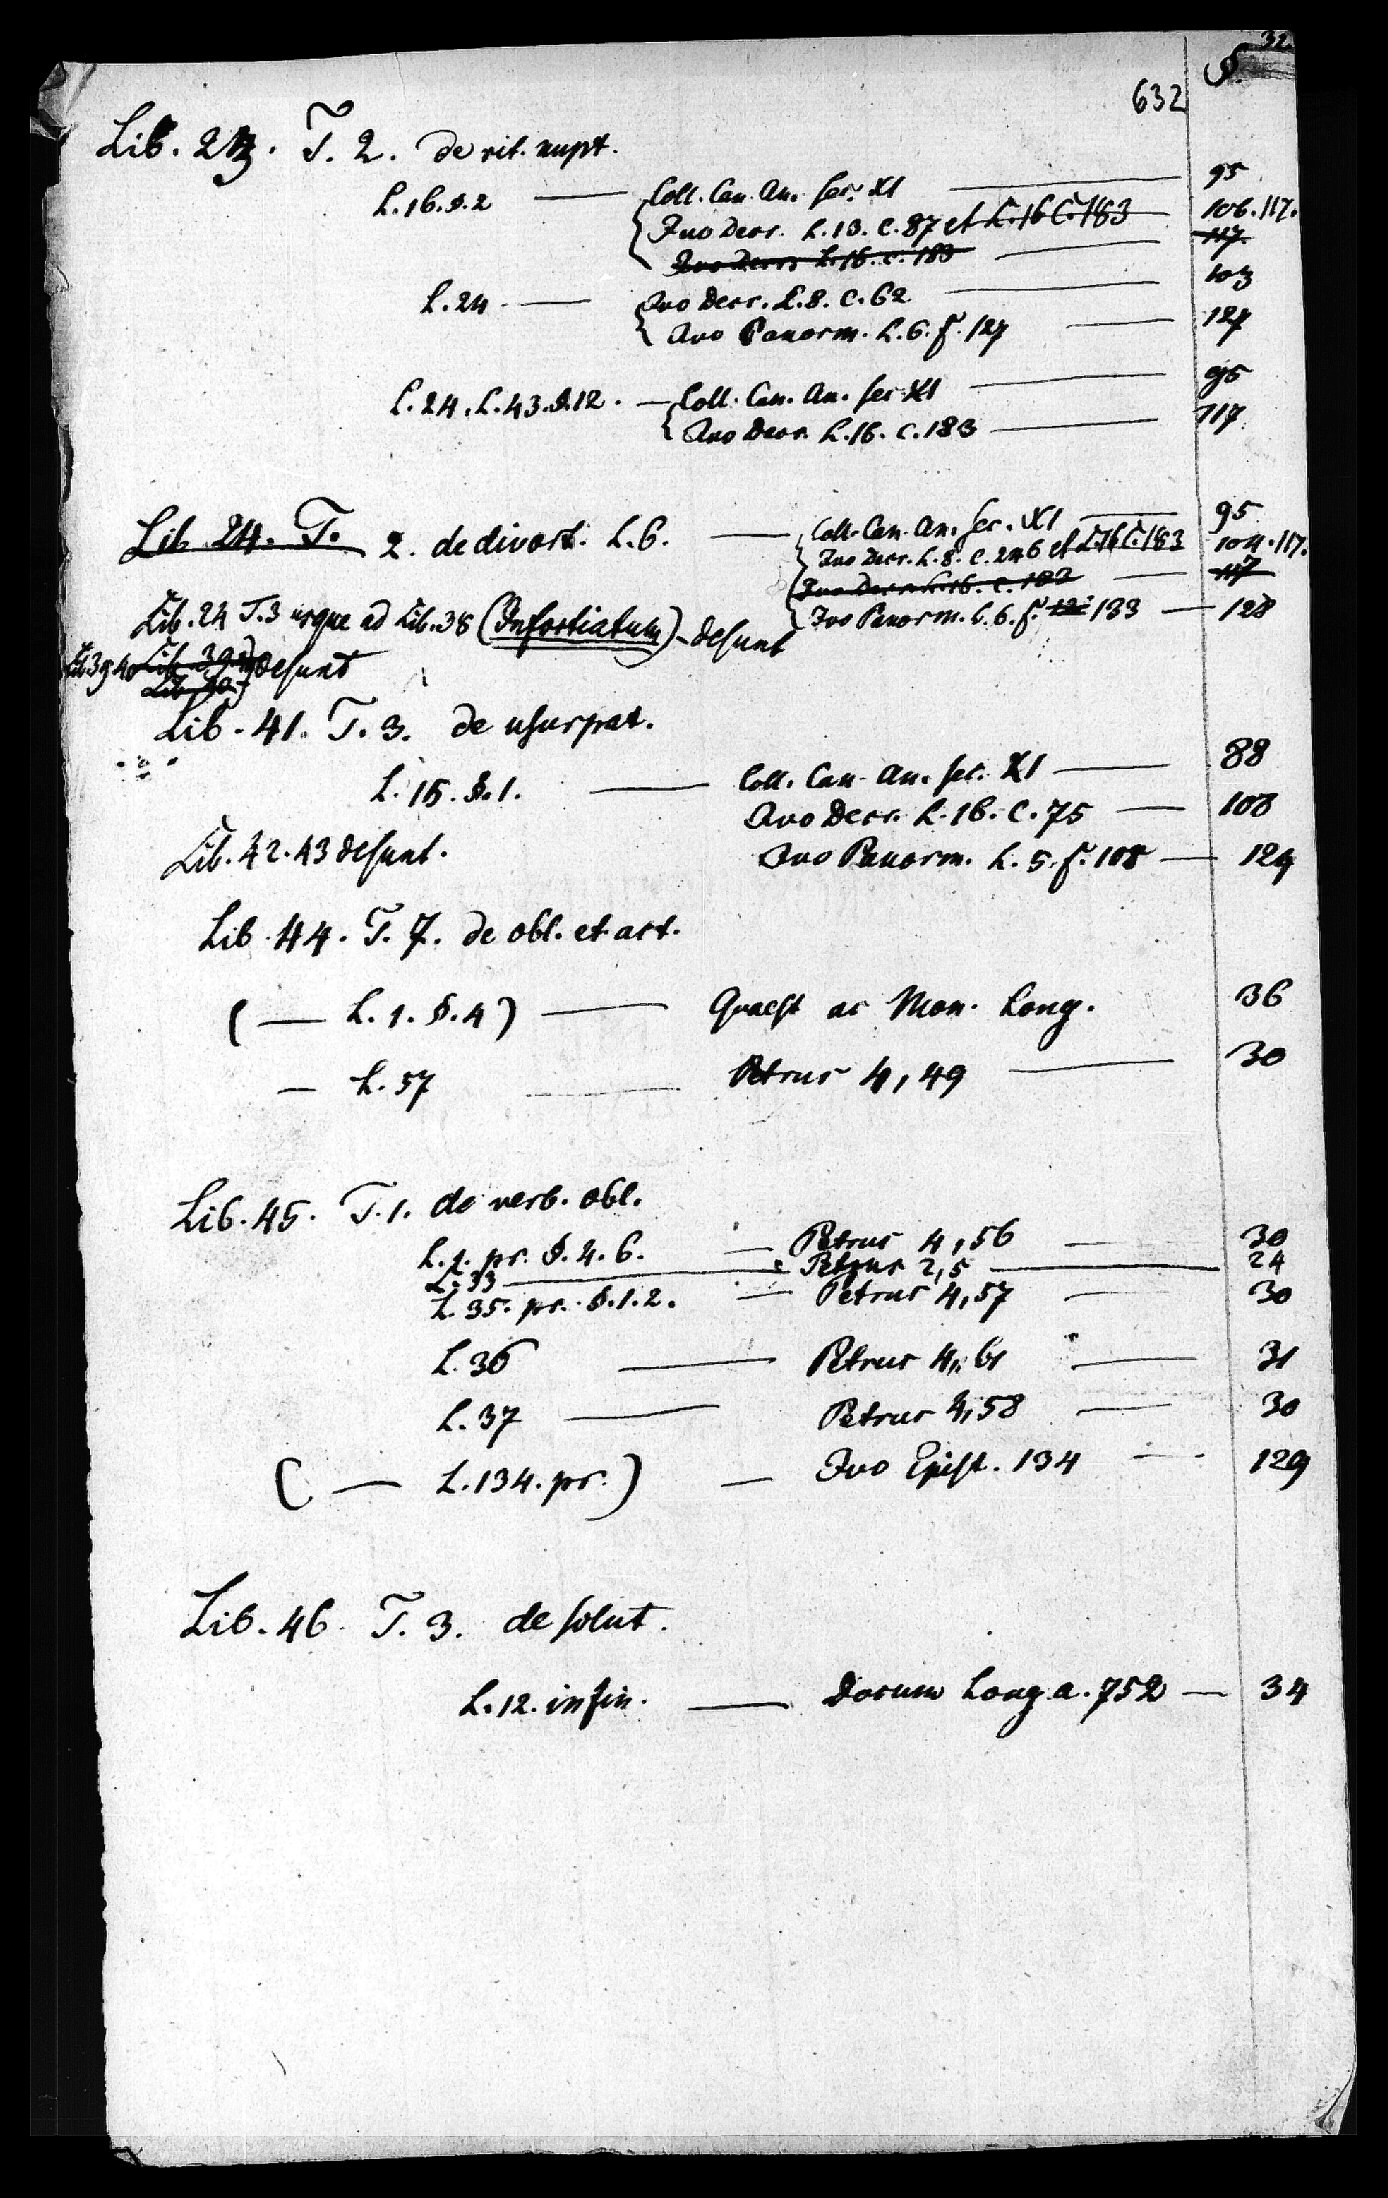 32
632 §.
Lib. 23. T. 2. de rit. nupt.
L. 16. §. 2 — Coll. Can. An. sec. XI — 95
Ivo Decr. L. 13. C. 87 et L. 16 C. 183 — 106. 117.
Ivo Decr. L. 16. C. 183 — 117.
L. 24 — Ivo Decr. L. 8. C. 62 — 103
Ivo Panorm. L. 6. f. 127 — 127
L. 24. L. 43. §. 12. — Coll. Can. An. sec XI — 95
Ivo Decr. L. 16. C. 183 — 117
Lib. 24. T. 2. de divort. L. 6. — Coll. Can. An. sec. XI — 95
Ivo Decr. L. 8. C. 246 et L. 16 C. 183 104. 117.
Ivo Decr. L. 16. C. 183 — 117
Ivo Panorm. L. 6. f. 133 — 128
Lib. 24 T. 3 usque ad Lib. 38 (Infortiatum) desunt
Lib 39 40 Lib. 39 desunt
Lib. 40
Lib. 41. T. 3. de usurpat.
L. 15. §. 1. — Coll. Can. An. sec. XI — 88
Ivo Decr. L. 16. C. 75 — 108
Lib. 42. 43 desunt. Ivo Panorm. L. 5. f. 108 — 124
Lib. 44. T. 7. de obl. et act.
( — L. 1. §. 4) — Quaest ac Mon. Long. 36
— L. 57 — Petrus 4, 49 — 30
Lib. 45. T. 1. de verb. obl.
L. 1. pr. §. 4. 6. — Petrus 4, 56 — 30
L. 33 — Petrus 2, 5 — 24
L. 35. pr. §. 1. 2. — Petrus 4, 57 — 30
L. 36 — Petrus 4, 61 — 31
L. 37 — Petrus 4, 58 — 30
( — L. 134. pr.) — Ivo Epist. 134 — 129
Lib. 46. T. 3. de solut.
L. 12. in fin. — Docum Long. a. 752 — 34